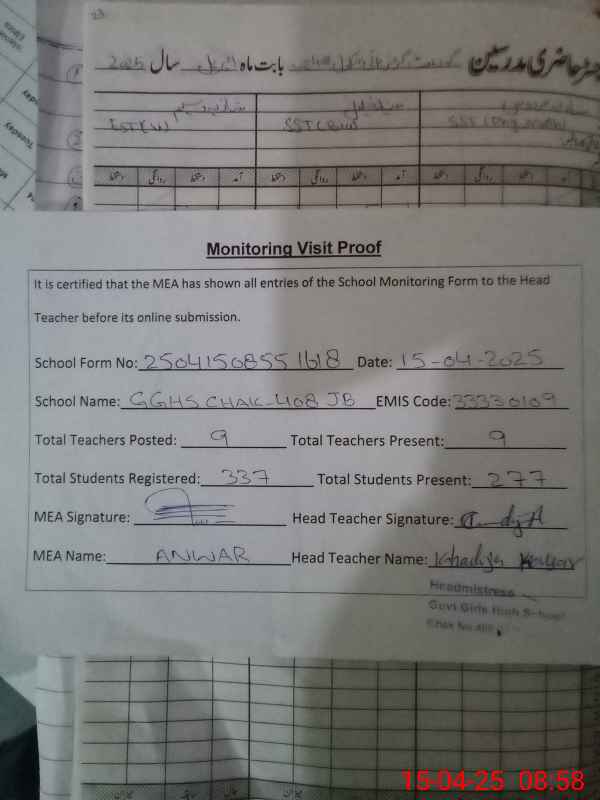 23
رجسٹر حاضری مدرسین بابت ماہ اپریل سال 2025
EST(W)
SST(Bio)
SST(Phy, Math)
آمد دستخط روانگی دستخط آمد دستخط روانگی دستخط
Tuesday
Monitoring Visit Proof
It is certified that the MEA has shown all entries of the School Monitoring Form to the Head
Teacher before its online submission.
School Form No: 25041508551618 Date: 15-04-2025
School Name: GGHS CHAK-408 JB EMIS Code: 33330109
Total Teachers Posted: 9 Total Teachers Present: 9
Total Students Registered: 337 Total Students Present: 277
MEA Signature: Head Teacher Signature:
MEA Name: ANWAR Head Teacher Name: Khadija
Headmistress
Govt Girls High School
Chak No.408
15-04-25 08:58